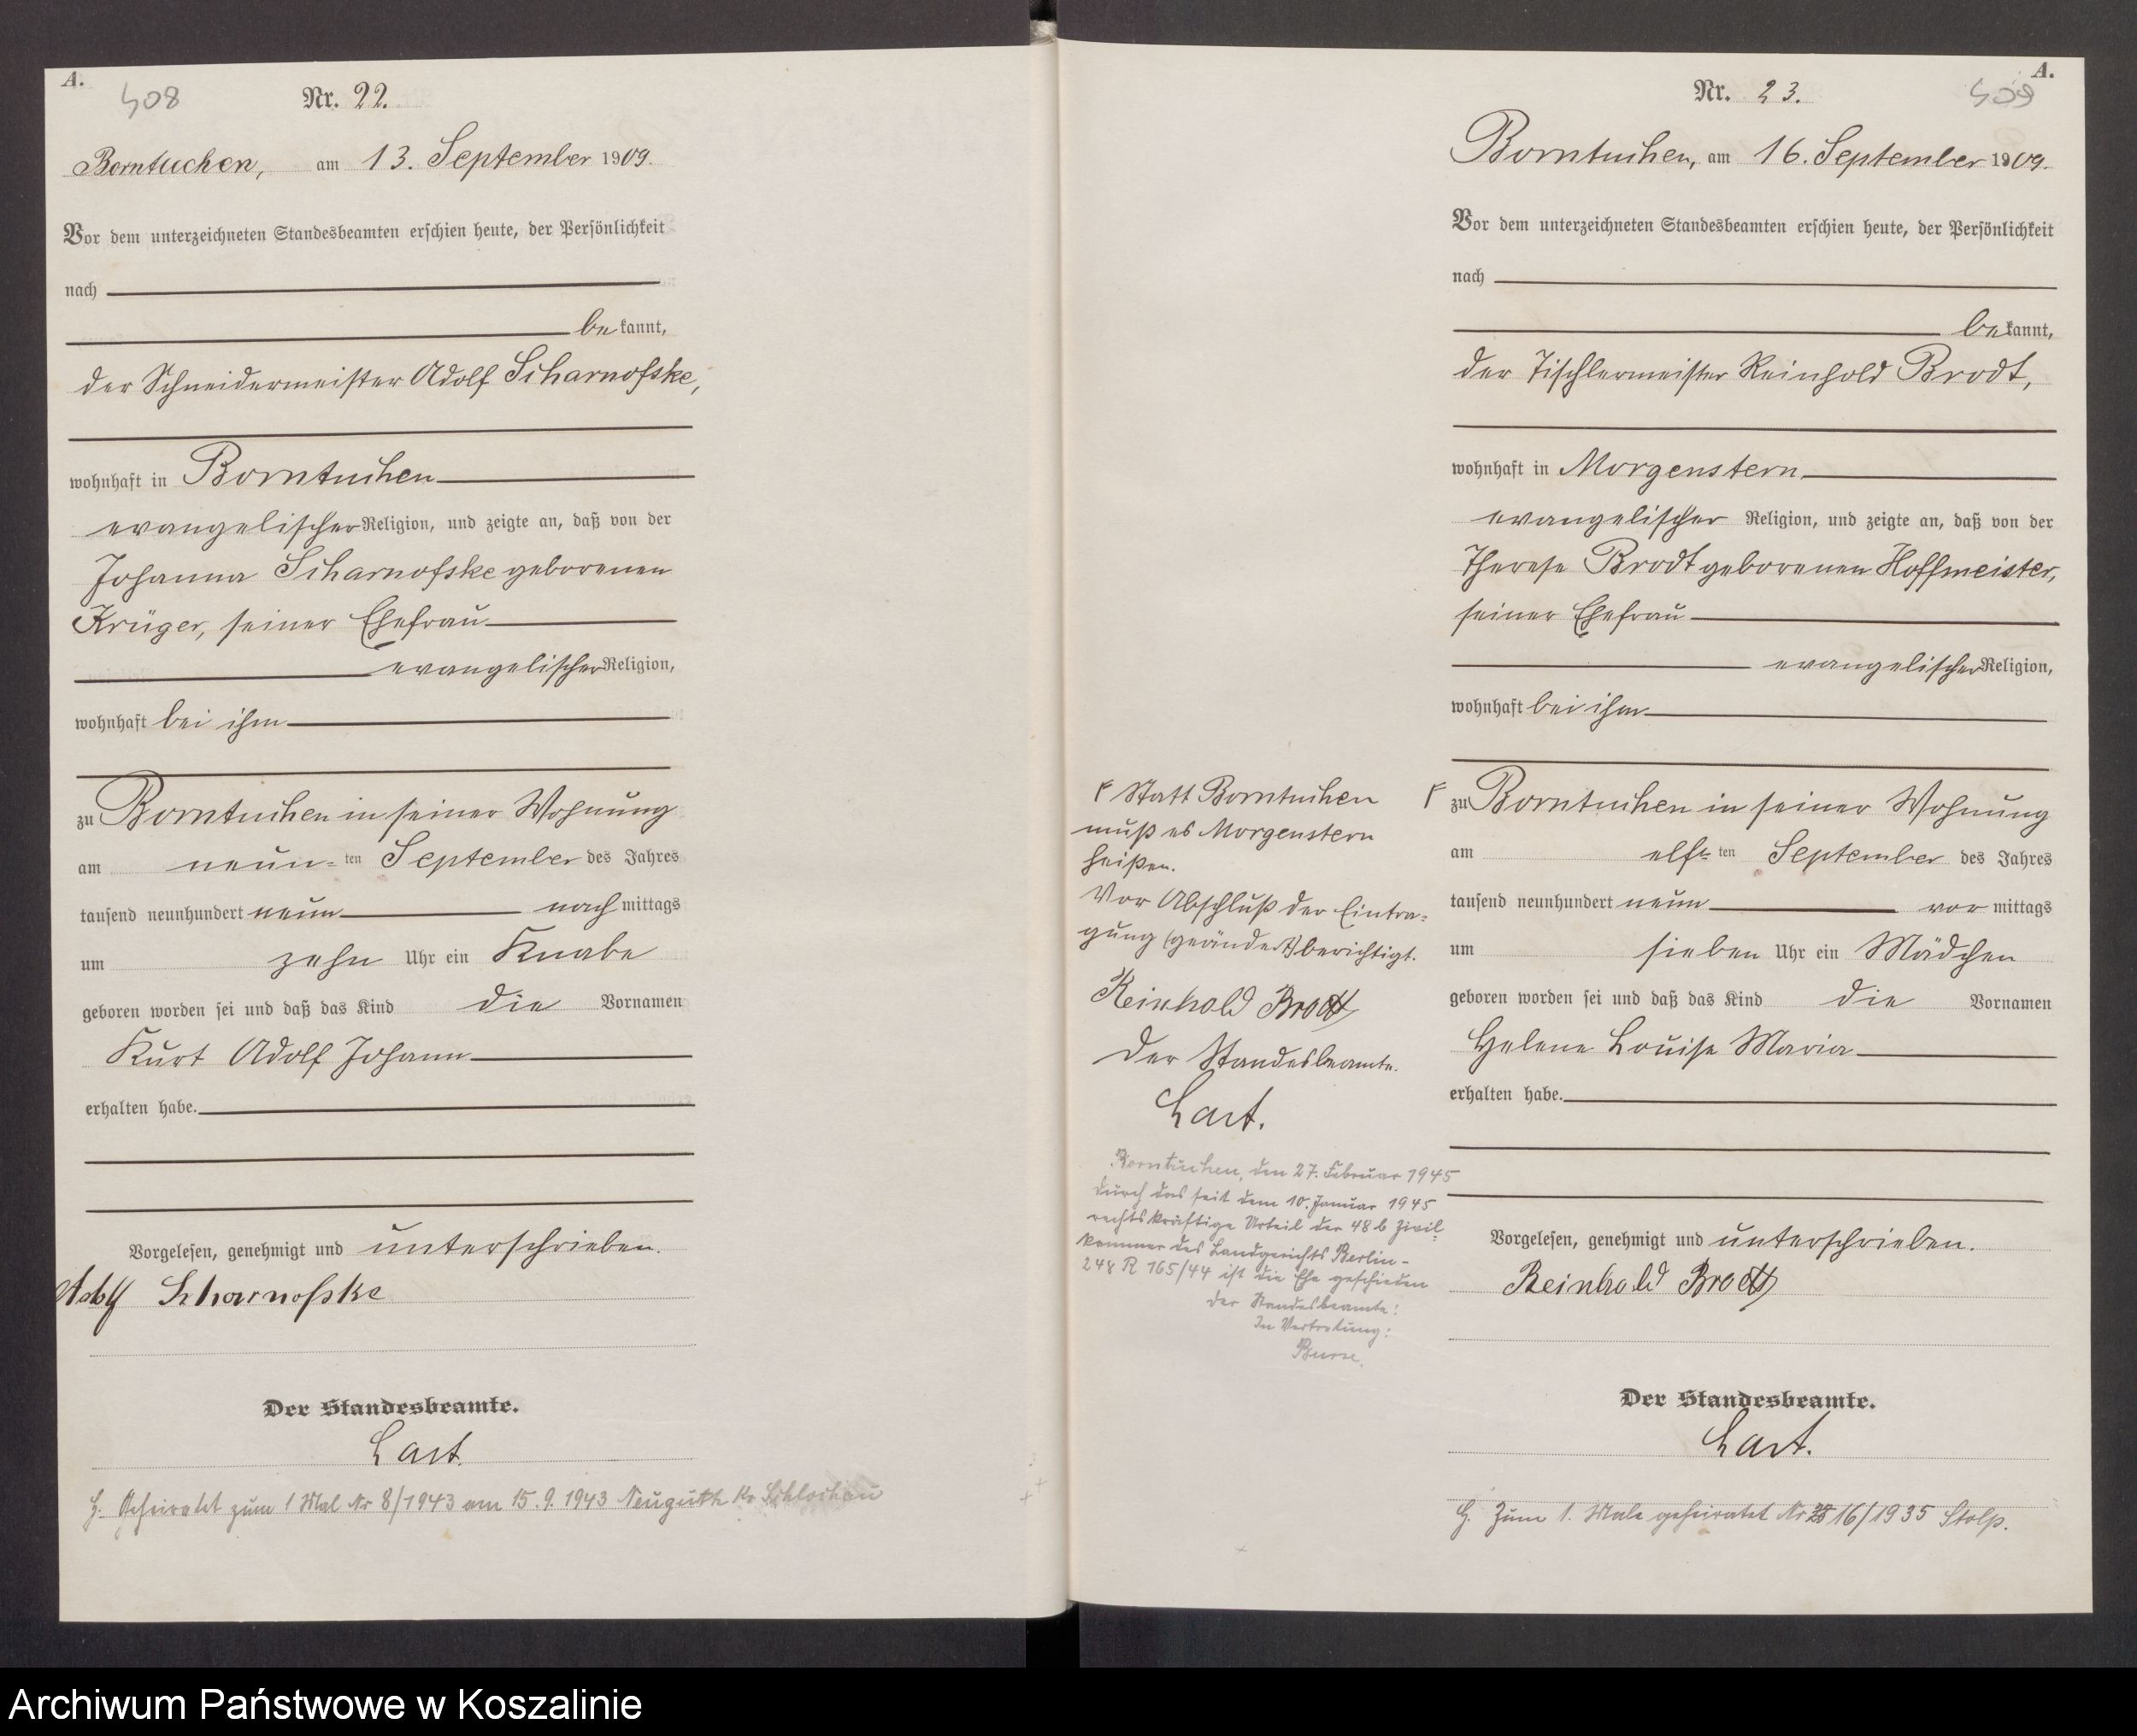 A.
408
Nr. 22.
Borntuchen, am 13. September 1909.
Vor dem unterzeichneten Standesbeamten erschien heute, der Persönlichkeit
nach
bekannt,
der Schneidermeister Adolf Scharnofske,
wohnhaft in Borntuchen
evangelischer Religion, und zeigte an, daß von der
Johanna Scharnofske geborenen
Krüger, seiner Ehefrau
evangelischer Religion,
wohnhaft bei ihm
zu Borntuchen in seiner Wohnung
am neun-ten September des Jahres
tausend neunhundert neun nachmittags
um zehn Uhr ein Knabe
geboren worden sei und daß das Kind die Vornamen
Kurt Adolf Johann
erhalten habe.
Vorgelesen, genehmigt und unterschrieben.
Adolf Scharnofske
Der Standesbeamte.
Last.
H. Geheiratet zum 1 Mal Nr 8/1943 am 15.9.1943 Neuguth Kr Schlochau
A.
409
Nr. 23.
Borntuchen, am 16. September 1909.
Vor dem unterzeichneten Standesbeamten erschien heute, der Persönlichkeit
nach
bekannt,
der Tischlermeister Reinhold Brodt,
wohnhaft in Morgenstern,
evangelischer Religion, und zeigte an, daß von der
Therese Brodt geborenen Hoffmeister,
seiner Ehefrau
evangelischer Religion,
wohnhaft bei ihm
zu Borntuchen in seiner Wohnung
am elf-ten September des Jahres
tausend neunhundert neun vormittags
um sieben Uhr ein Mädchen
geboren worden sei und daß das Kind die Vornamen
Helene Louise Maria
erhalten habe.
Vorgelesen, genehmigt und unterschrieben.
Reinhold Brodt
Der Standesbeamte.
Last.
H. Zum 1. Male geheiratet Nr 16/1935 Stolp.
Statt Borntuchen
muß es Morgenstern
heißen.
Vor Abschluß der Eintra-
gung (geändert) berichtigt.
Reinhold Brodt
Der Standesbeamte.
Last.
Borntuchen, den 27. Februar 1945
Durch das seit dem 10. Januar 1945
rechtskräftige Urteil der 48 b Zivil-
kammer des Landgerichts Berlin -
248 R 165/44 ist die Ehe geschieden
Der Standesbeamte:
In Vertretung:
Archiwum Państwowe w Koszalinie